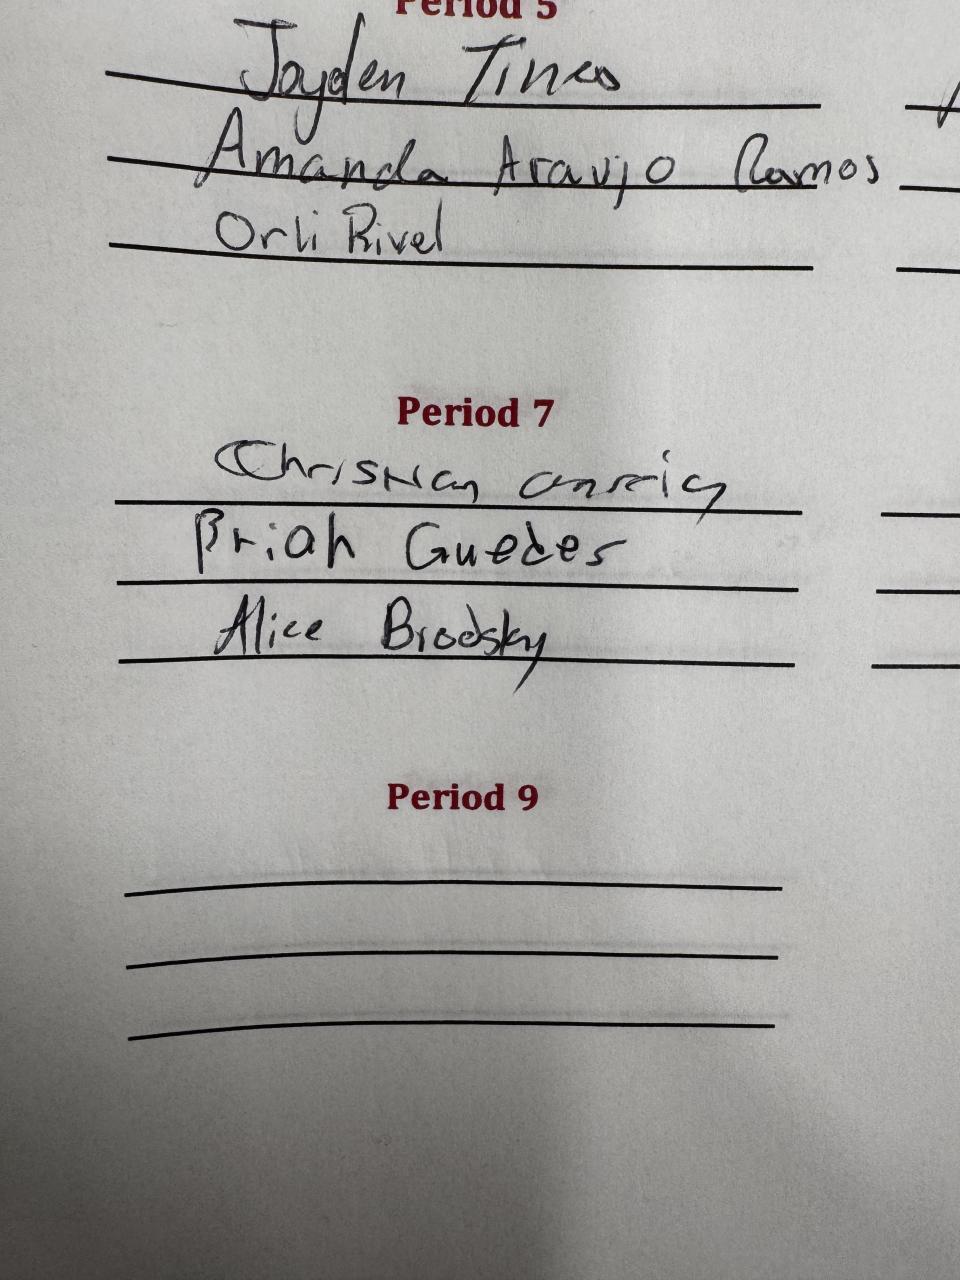 Period 5
Jayden Tineo
Amanda Araujo Ramos
Orli Rivel
Period 7
Christian
Brian Guedes
Alice Brodsky
Period 9